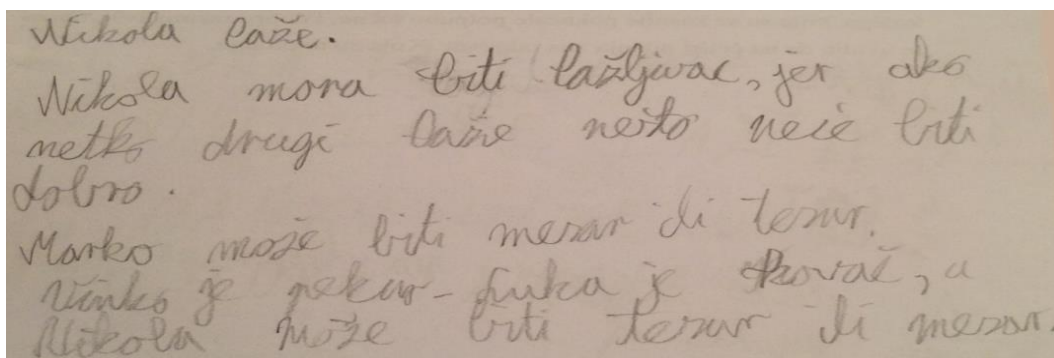 Nikola laže.
Nikola mora biti lažljivac, jer ako
netko drugi laže nešto neće biti
dobro.
Marko može biti mesar ili tesar.
Vinko je pekar - Luka je kovač, a
Nikola može biti tesar ili mesar.